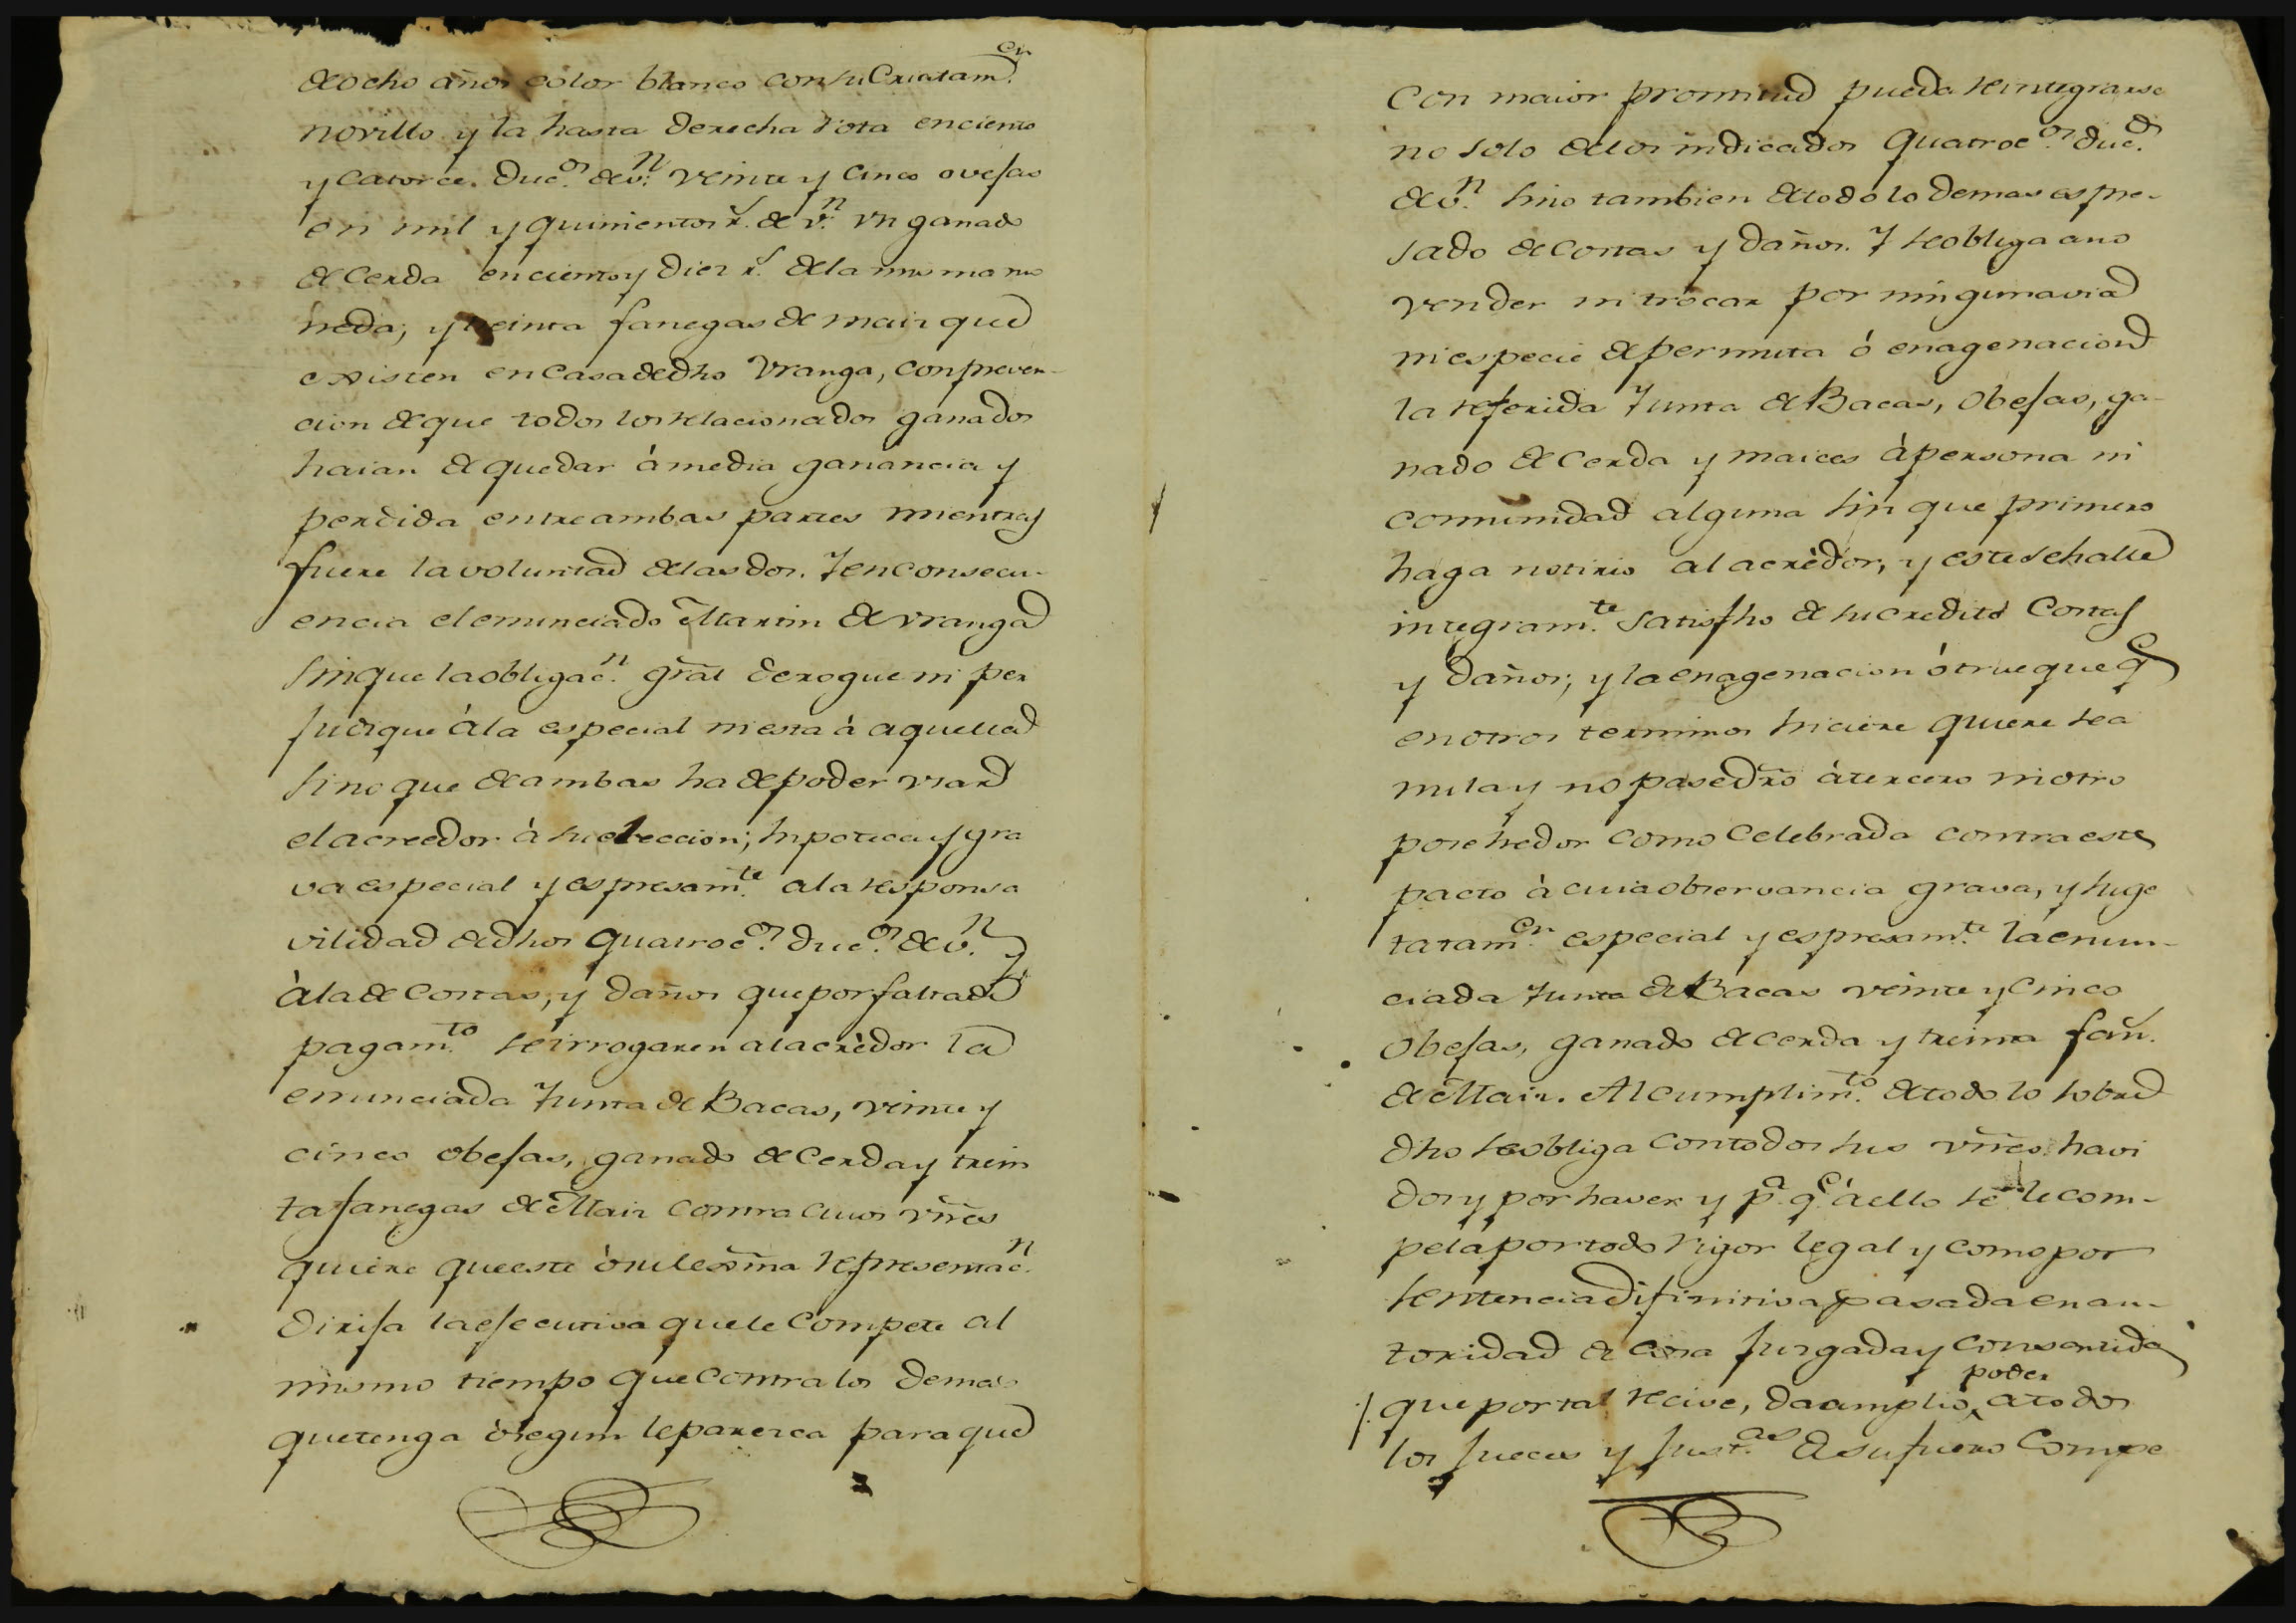 de ocho años color blanco con su Cria tamᵉⁿ.
novillo y la hasta derecha rota en ciento
y catorce. Ducᵒˢ. de vⁿ. veinte y cinco ovejas
en mil y quinientos rˢ. de vⁿ. vn ganado
de Cerda en ciento y diez rˢ. de la misma mo
neda; y treinta fanegas de maiz que
existen en Casa de dho Vranga, con preven-
cion de que todos los relacionados ganados
haian de quedar á media ganancia y
perdida entre ambas partes mientras
fuere la voluntad de las dos. Y en consecu-
encia el enunciado Martin de Vranga
sin que la obligacⁿ. gr̃al derogue ni per
judique á la especial ni esta á aquella
sino que de ambas ha de poder vsar
el acreedor á su eleccion; hipoteca y gra
va especial y espresamᵗᵉ. a la responsa
vilidad de dhos quatrocᵒˢ. ducᵒˢ. de vⁿ. y
á la de Costas, y daños que por falta de
pagamᵗᵒ. se irrogaren al acrèdor la
enunciada Junta de Bacas, veinte y
cinco obejas, ganado de Cerda y trein
ta fanegas de Maiz contra cuios vñes
quiere que este ò su lexm̃a representacⁿ.
dirija la ejecutiva que le Compete al
mismo tiempo que contra los demas
que tenga ò segun le parezca para que
Con maior prontitud pueda reintegrarse
no solo de los indicados quatrocᵒˢ. ducᵒˢ.
de vⁿ. sino tambien de todo lo demas espre-
sado de Costas y daños. Y se obliga a no
vender ni trocar por ninguna via
ni especie de permuta ó enagenacion
la referida Junta de Bacas, Obejas, ga-
nado de Cerda y maices á persona ni
comunidad alguna sin que primero
haga notirio al acrèdor, y este se halle
integramᵗᵉ. satisfho de su credito Costas
y daños; y la enagenacion ó trueque qᵉ
en otros terminos hiciere quiere sea
nula y no pase dr̃o á tercero ni otro
posehedor como Celebrada contra este
pacto á cuia observancia grava, y suge
ta tamᵉⁿ. especial y espresamᵗᵉ. la enun-
ciada Junta de Bacas veinte y Cinco
Obejas, ganado de cerda y treinta fanˢ.
de Maiz. Al cumplimᵗᵒ. de todo lo sobre
dho se obliga con todos sus vñes havi
dos y por haver y pᵃ. qᵉ á ello se le com-
pela por todo rigor legal y como por
sentencia difinitiva pasada en au-
toridad de cosa juzgada y consentida
poder
que por tal recive, da amplio a todos
los jueces y Justᵃˢ. de su fuero Compe